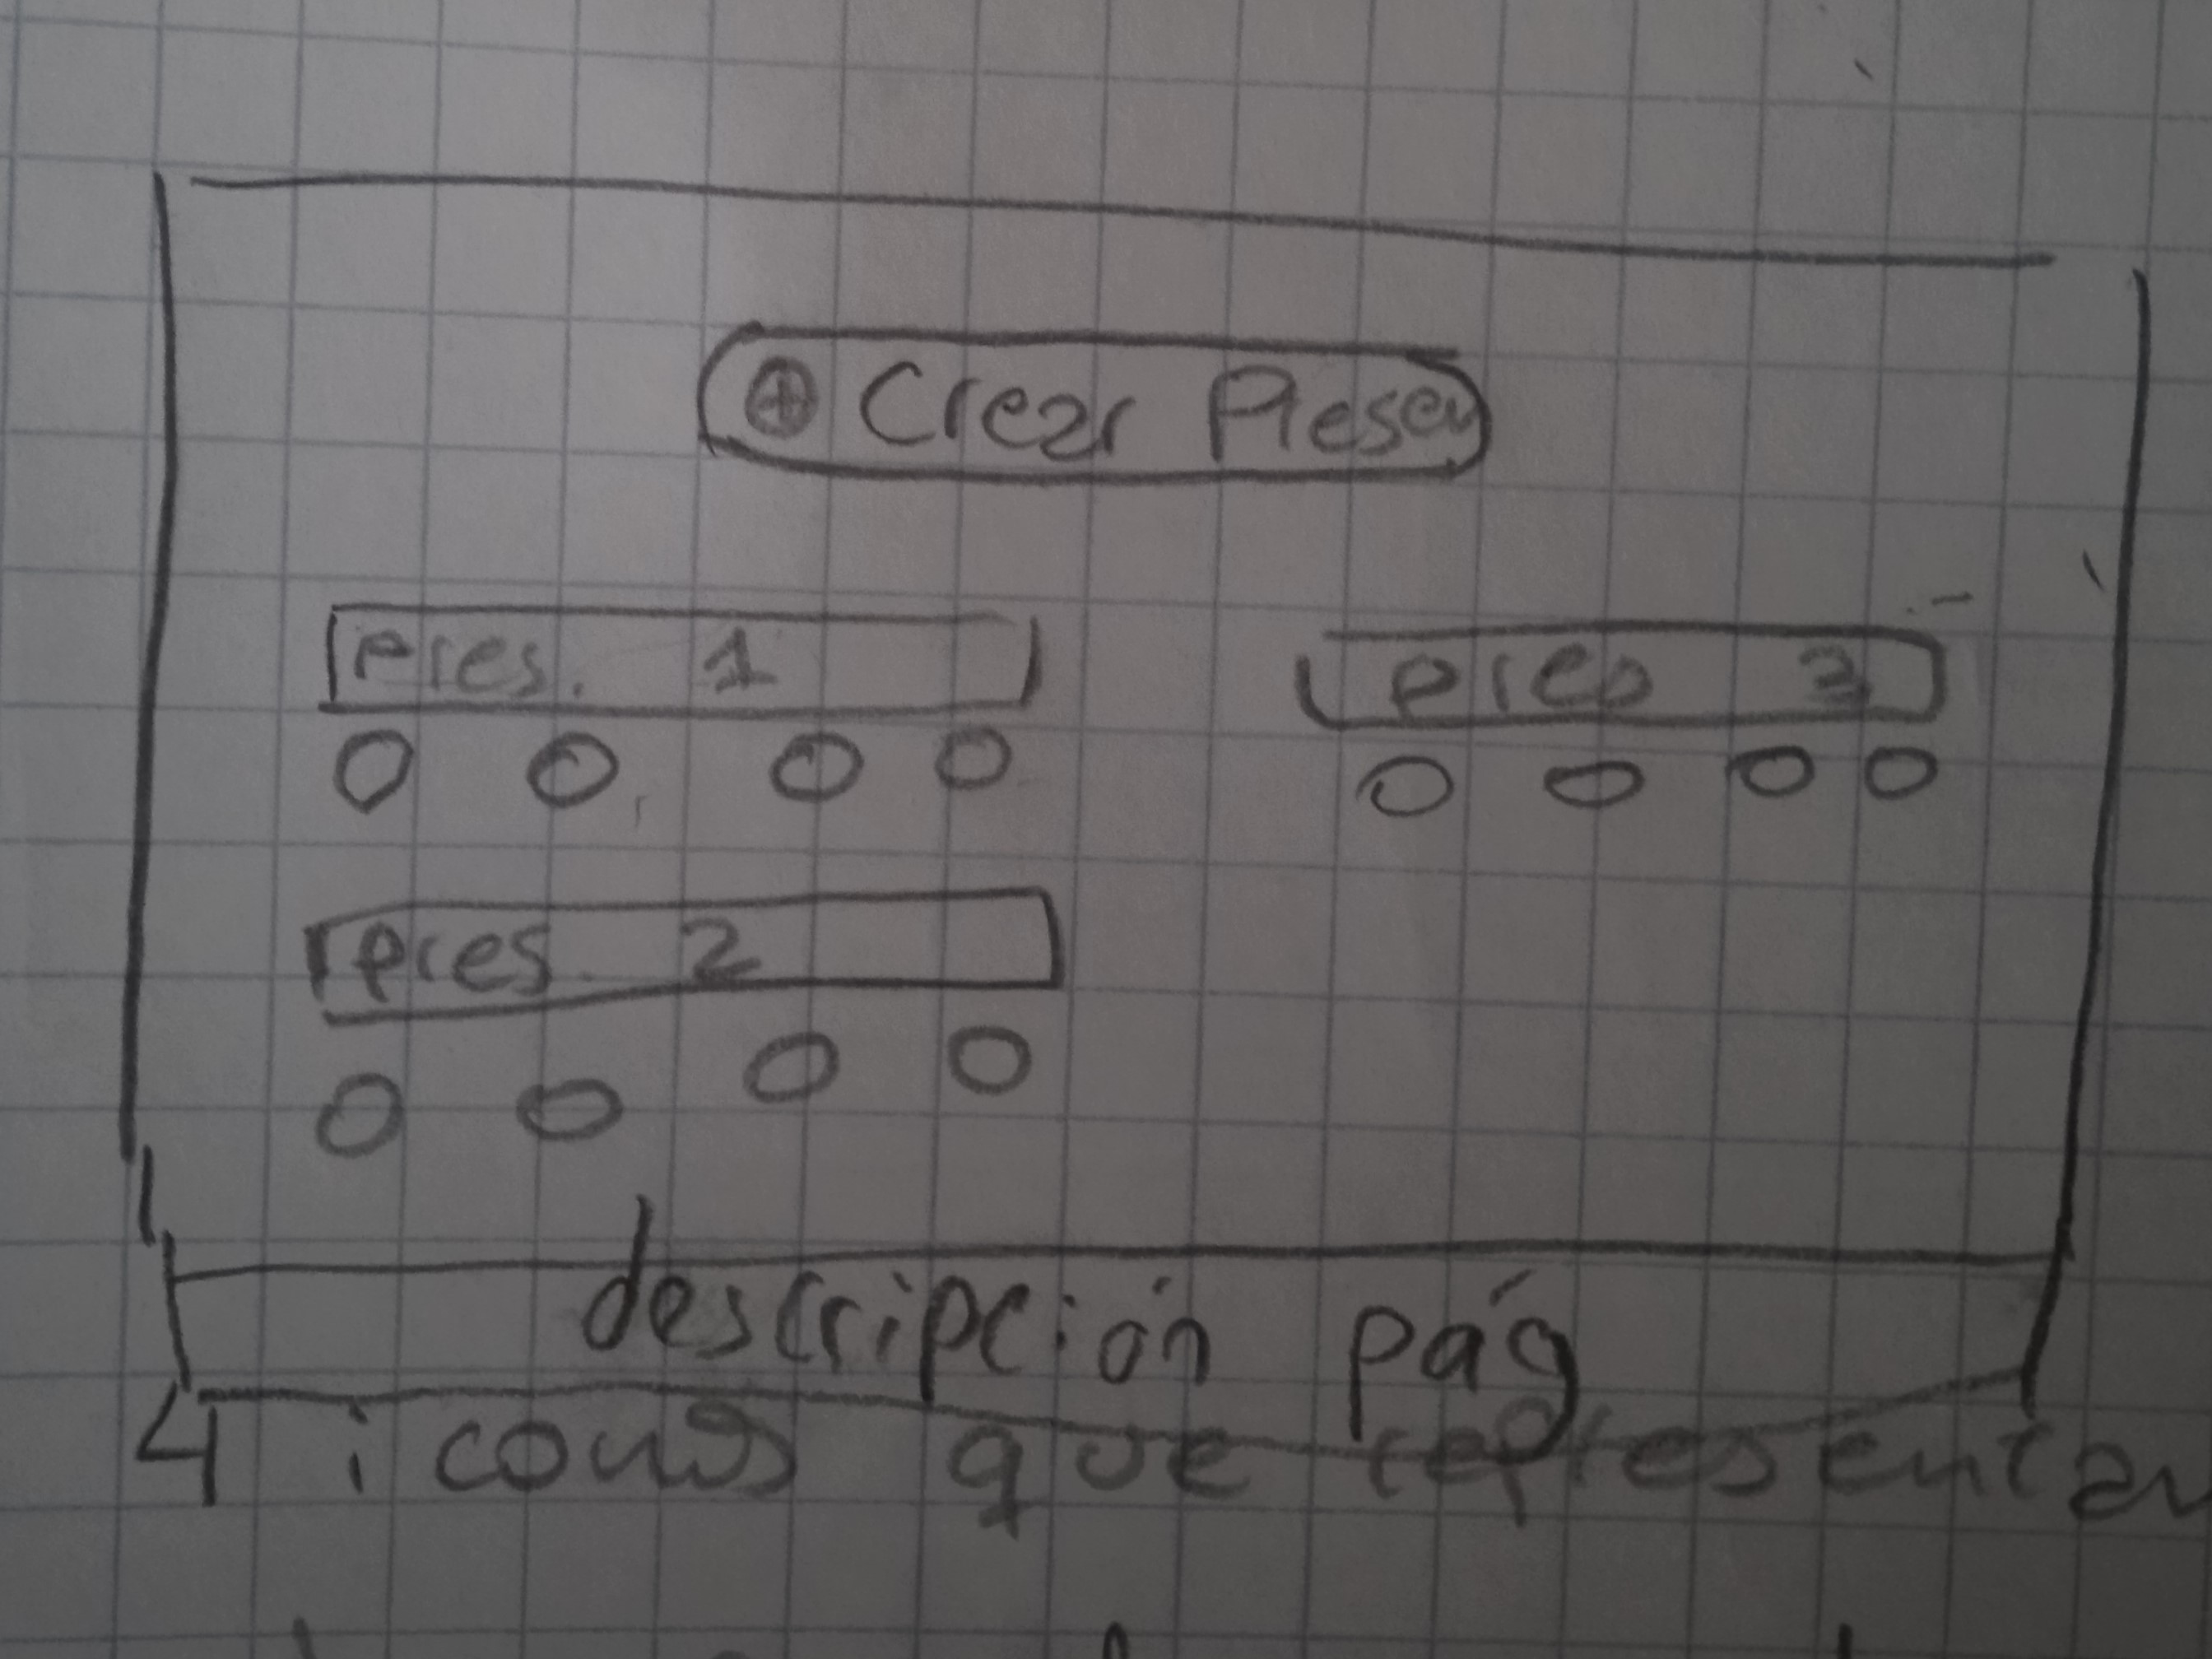 ⊕ Crear Presen
Pres. 1
pres 3
pres. 2
descripción pág
4 iconos que representan